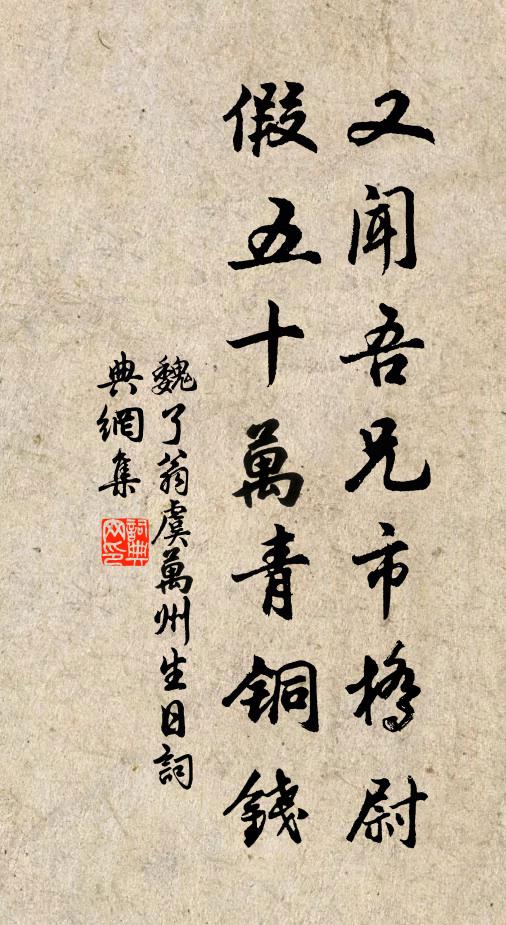 又聞吾兄市橋尉
假五十萬青銅錢
魏了翁虞萬州生日詞
典網集
詞典網印